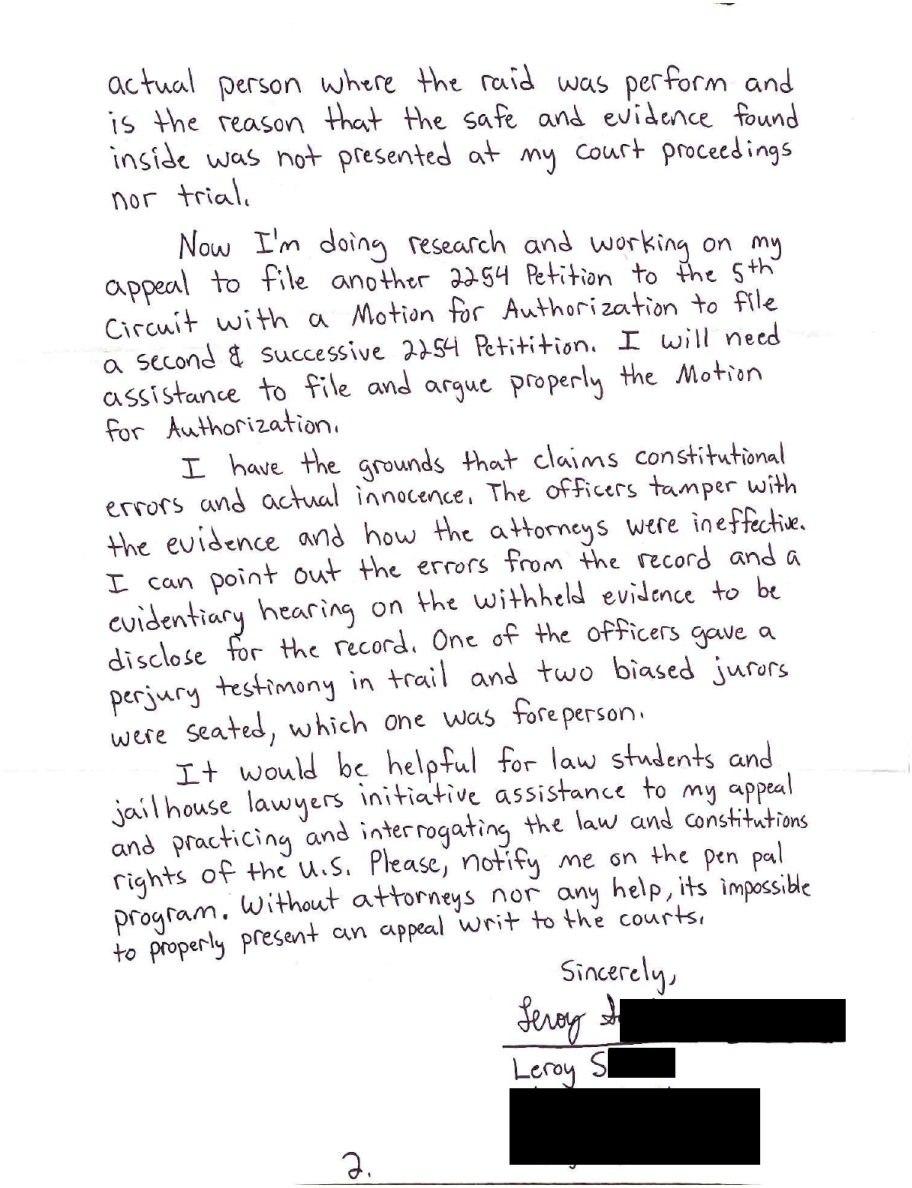 actual person where the raid was perform and
is the reason that the safe and evidence found
inside was not presented at my court proceedings
nor trial.
Now I'm doing research and working on my
appeal to file another 2254 Petition to the 5th
Circuit with a Motion for Authorization to file
a second & successive 2254 Petitition. I will need
assistance to file and argue properly the Motion
for Authorization.
I have the grounds that claims constitutional
errors and actual innocence. The officers tamper with
the evidence and how the attorneys were ineffective.
I can point out the errors from the record and a
evidentiary hearing on the withheld evidence to be
disclose for the record. One of the officers gave a
perjury testimony in trail and two biased jurors
were seated, which one was foreperson.
It would be helpful for law students and
jailhouse lawyers initiative assistance to my appeal
and practicing and interrogating the law and constitutions
rights of the U.S. Please, notify me on the pen pal
program. Without attorneys nor any help, its impossible
to properly present an appeal writ to the courts.
Sincerely,
Leroy S
Leroy S
2.